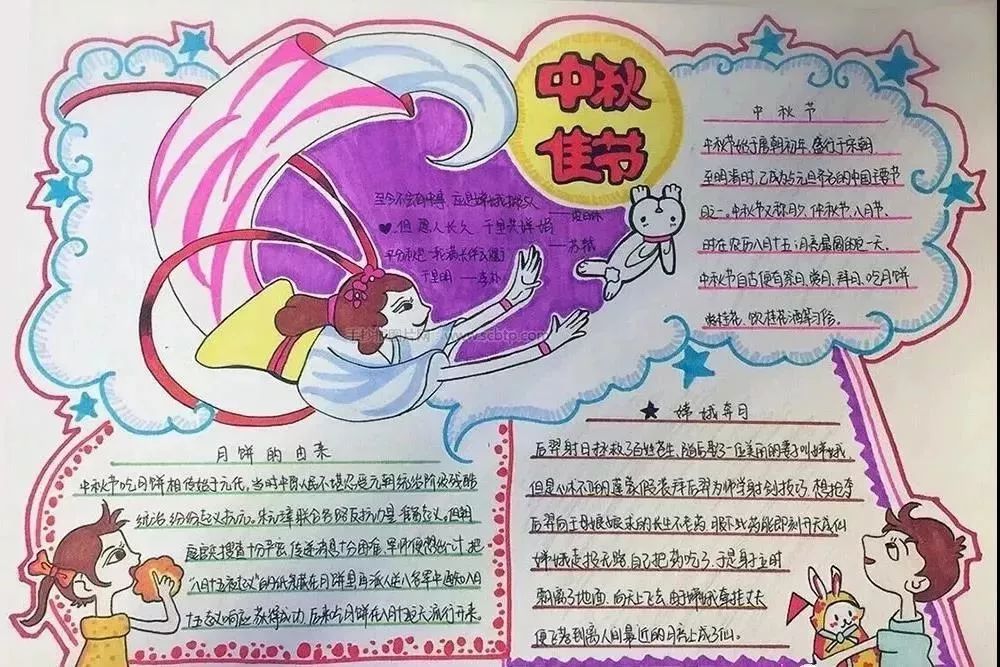 中秋
佳节
中秋节
中秋节始于唐朝初年,盛行于宋朝
至明清时,已成为与元旦齐名的中国主要节
日之一。中秋节又称月夕、仲秋节、八月节。
时在农历八月十五;月亮最圆的一天。
中秋节自古便有祭月、赏月、拜月、吃月饼
赏桂花、饮桂花酒等习俗。
但愿人长久 千里共婵娟
——苏轼
www.scbtp.com
月饼的由来
中秋节吃月饼相传始于元代,当时中原人民不堪忍受元朝统治阶级残酷
统治 纷纷起义抗元。朱元璋联合各路反抗力量 准备起义。但朝
庭官兵搜查十分严密 传递消息十分困难 军师便想出一计,把
"八月十五夜起义"的纸条藏在月饼里再派人送入各军中通知八月
十五起义响应 获得成功 后来吃月饼在八月十五天流行开来。
嫦娥奔月
后羿射日拯救了百姓苍生 随后娶了一位美丽的妻子叫嫦娥
但是心术不正的蓬蒙假装拜后羿为师学射剑技巧 想抢夺
后羿向王母娘娘求的长生不老药 服下此药能即刻升天成仙
嫦娥走投无路 自己把药吃了 于是身立时
飘离了地面 向天上飞去 由于嫦娥牵挂丈夫
便飞落到离人间最近的月亮上成了仙。